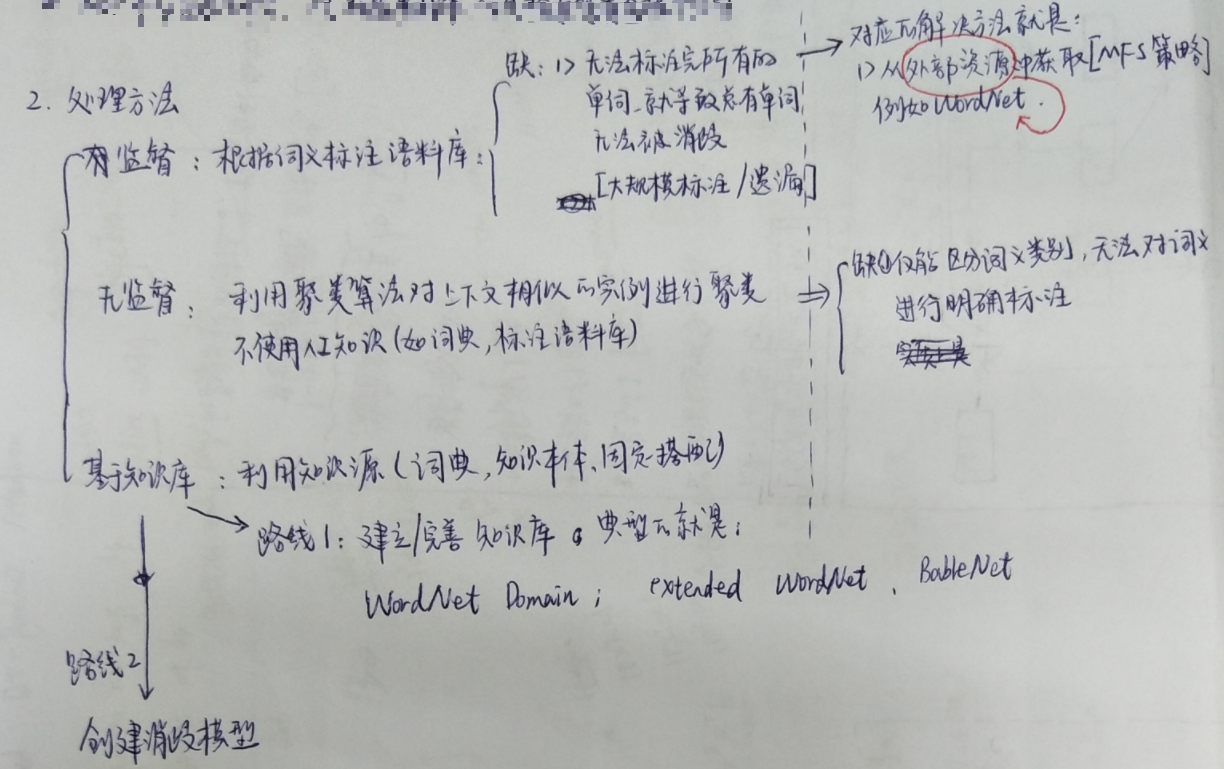 2. 处理方法
有监督：根据词义标注语料库：
缺：1) 无法标注完所有的
单词，就导致总有单词
无法被消歧
[大规模标注/遗漏]
对应的解决方法就是：
1) 从外部资源中获取[MFS策略]
例如WordNet.
无监督：利用聚类算法对上下文相似的实例进行聚类
不使用人工知识(如词典,标注语料库)
缺①仅能区分词义类别,无法对词义
进行明确标注
基于知识库：利用知识源(词典,知识本体、固定搭配)
路线1：建立/完善知识库。典型的就是：
WordNet Domain; extended WordNet、BableNet
路线2
创建消歧模型